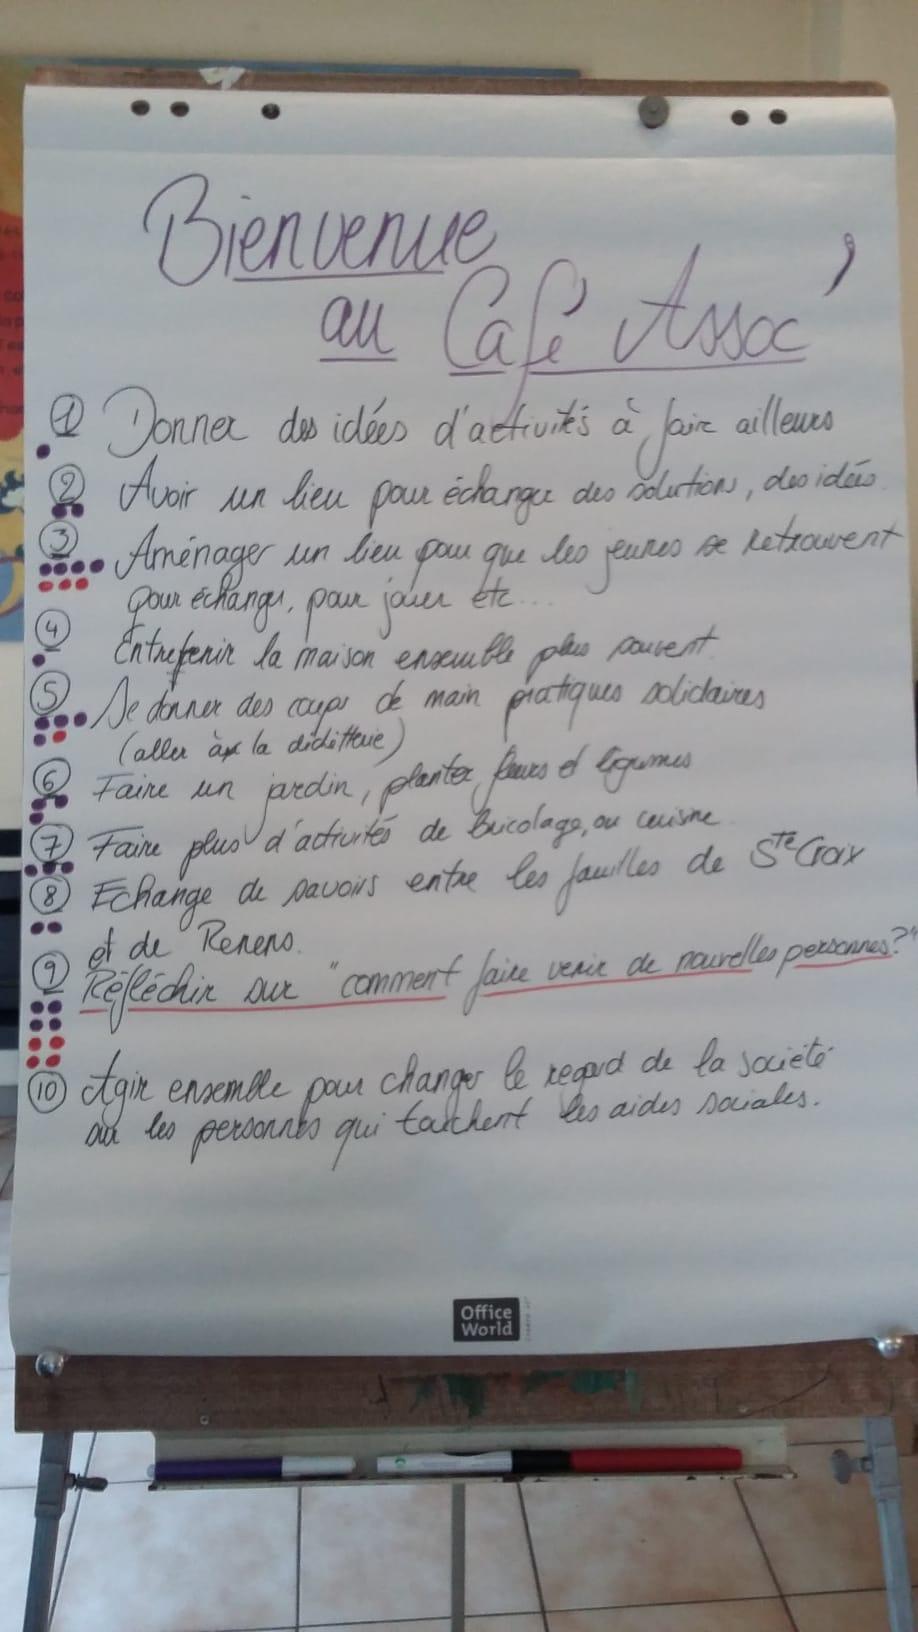 Bienvenue
au Café Assoc'
1 Donner des idées d'activités à fair ailleurs
2 Avoir un lieu pour échanger des solutions, des idées.
3 Aménager un lieu pour que les jeunes se retrouvent
pour échanger, pour jouer etc...
4 Entretenir la maison ensemble plus souvent.
5 Se donner des coups de main pratiques solidaires
(aller à la déchetterie)
6 Faire un jardin, planter fleurs et légumes
7 Faire plus d'activités de bricolage, ou cuisine
8 Echange de savoirs entre les familles de Ste Croix
et de Renens.
9 Réfléchir sur "comment faire venir de nouvelles personnes?"
10 Agir ensemble pour changer le regard de la société
sur les personnes qui touchent les aides sociales.
Office
World